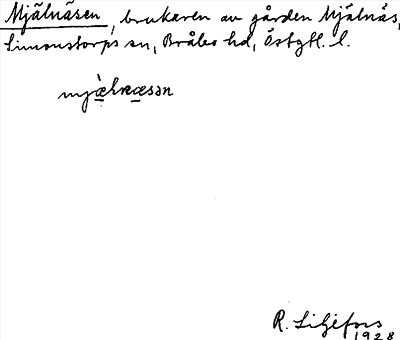 Mjälnäsen, brukaren av gården Mjälnäs,
Simonstorps sn, Bråbo hd, Östgtl. l.
mjæ̀lnæsən
R. Liljefors
1928